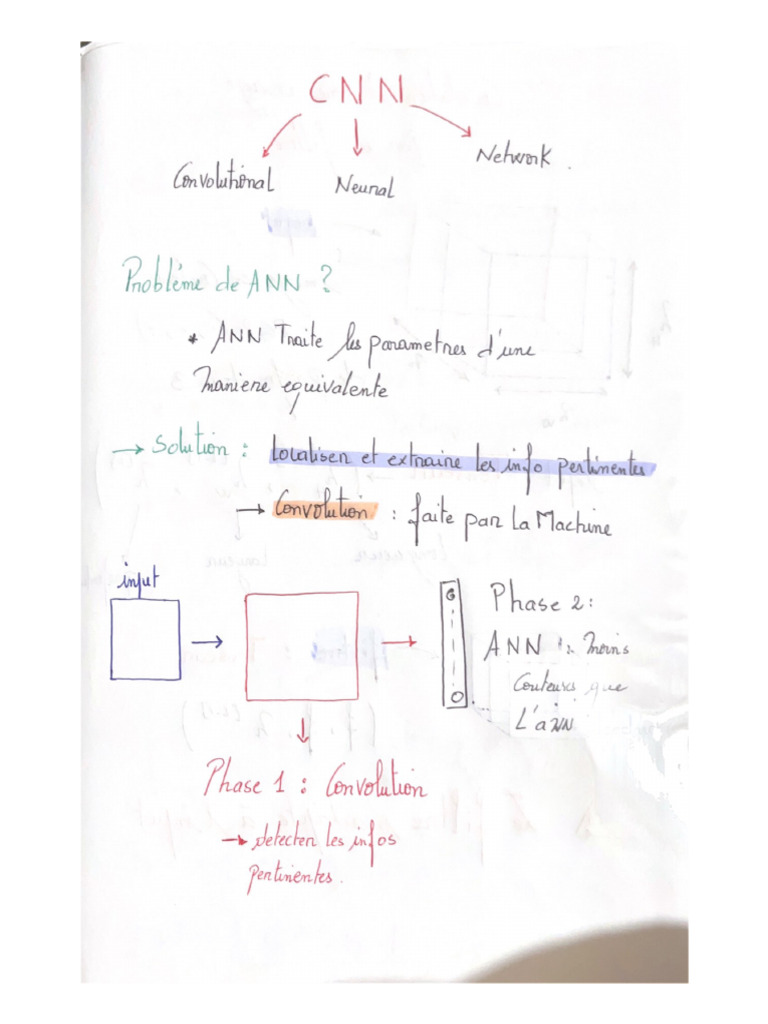 CNN
Convolutional Neural Network.
Problème de ANN ?
* ANN Traite les parametres d'une
maniere equivalente
→ Solution : Localiser et extraire les info pertinentes
→ Convolution : faite par la Machine
input
Phase 2 :
ANN : Moins
Couteuses que
L'aNN
Phase 1 : Convolution
→ detecter les infos
pertinentes.